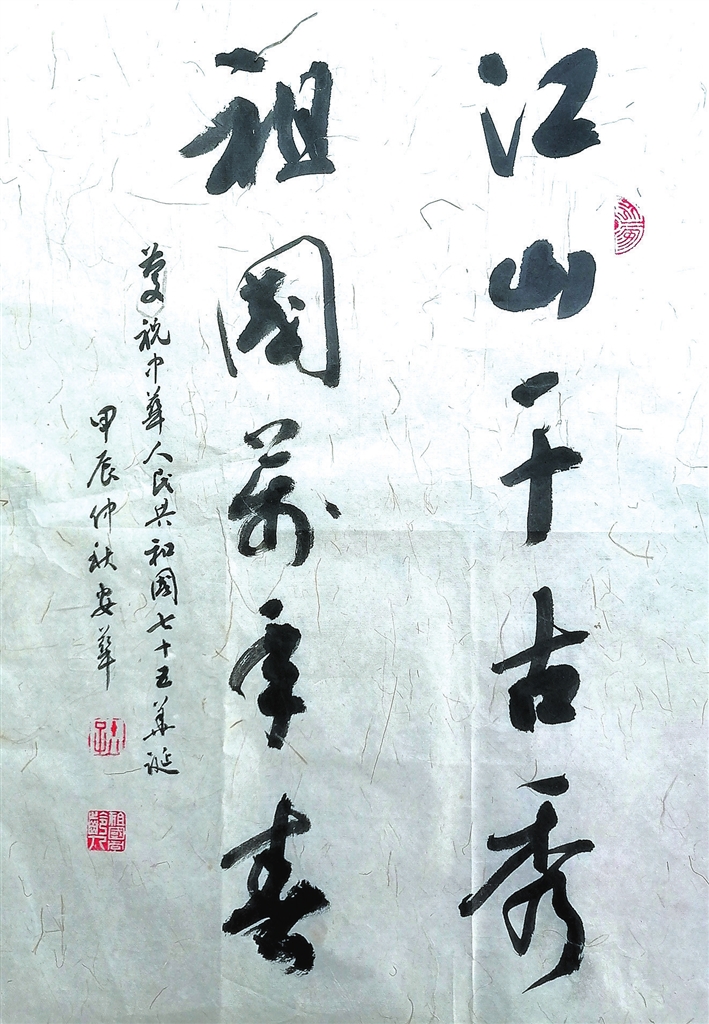 江山千古秀
祖國萬年春
慶祝中華人民共和國七十五華誕
甲辰仲秋安華